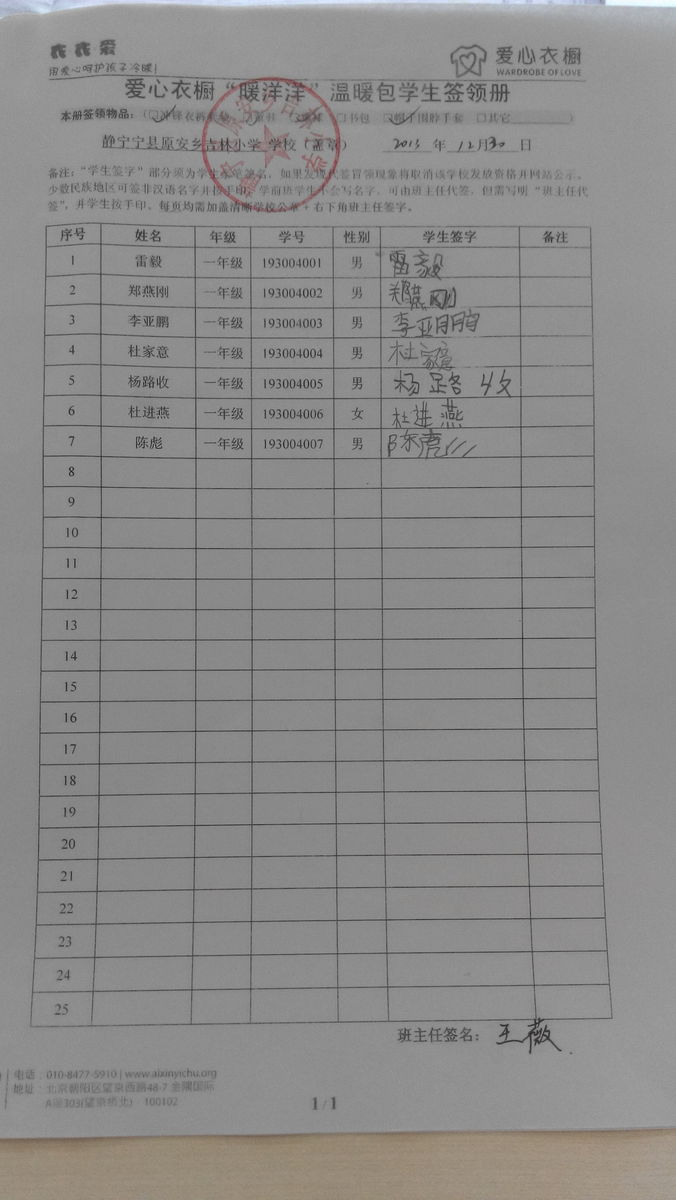 衣衣爱
用爱心呵护孩子冷暖!
爱心衣橱
WARDROBE OF LOVE
爱心衣橱“暖洋洋”温暖包学生签领册
本册签领物品:(☑冲锋衣裤 □书包 □帽子围脖手套 □其它 )
静宁宁县原安乡吉林小学 学校(盖章) 2013 年 12月30 日
备注:“学生签字”部分须为学生本人签名,如果发现代签冒领现象将取消该学校发放资格并网站公示。
少数民族地区可签非汉语名字并按手印,学前班学生不会写名字,可由班主任代签,但需写明“班主任代
签”,并学生按手印。每页均需加盖清晰学校公章+右下角班主任签字。
序号 姓名 年级 学号 性别 学生签字 备注
1 雷毅 一年级 193004001 男 雷毅
2 郑燕刚 一年级 193004002 男 郑燕刚
3 李亚鹏 一年级 193004003 男 李亚鹏
4 杜家意 一年级 193004004 男 杜家意
5 杨路收 一年级 193004005 男 杨路收
6 杜进燕 一年级 193004006 女 杜进燕
7 陈彪 一年级 193004007 男 陈彪
8
9
10
11
12
13
14
15
16
17
18
19
20
21
22
23
24
25
班主任签名: 王薇
电话:010-8477-5910 | www.aixinyichu.org
地址:北京朝阳区望京西路48-7 金隅国际
A座303(望京桥北) 100102
1 / 1